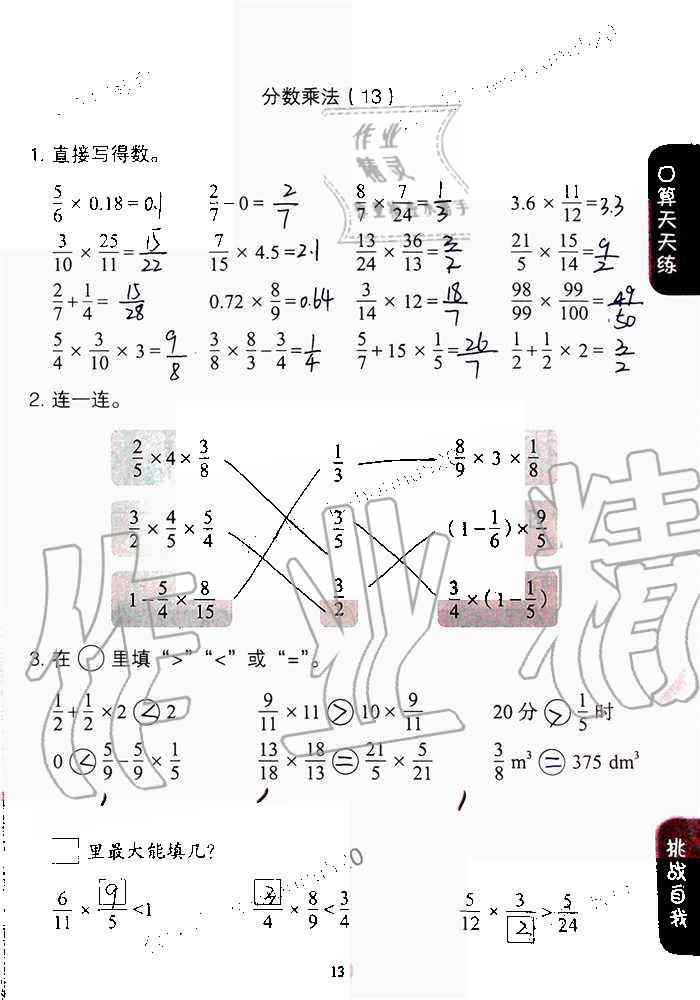 分数乘法(13)
1. 直接写得数。
5/6 × 0.18=0.1 2/7−0=2/7 8/7 × 7/24=1/3 3.6 × 11/12=3.3
3/10 × 25/11=15/22 7/15 × 4.5=2.1 13/24 × 36/13=3/2 21/5 × 15/14=9/2
2/7+1/4=15/28 0.72 × 8/9=0.64 3/14 × 12=18/7 98/99 × 99/100=49/50
5/4 × 3/10 × 3=9/8 3/8 × 8/3−3/4=1/4 5/7+15 × 1/5=26/7 1/2+1/2 × 2=3/2
2. 连一连。
2/5 × 4 × 3/8 1/3 8/9 × 3 × 1/8
3/2 × 4/5 × 5/4 3/5 (1−1/6) × 9/5
1−5/4 × 8/15 3/2 3/4 ×(1−1/5)
3. 在 ○ 里填“>”“<”或“=”。
1/2+1/2 ×2 < 2 9/11 × 11 > 10 × 9/11 20 分 > 1/5 时
0 < 5/9−5/9 × 1/5 13/18 × 18/13 = 21/5 × 5/21 3/8 m³ = 375 dm³
□ 里最大能填几?
6/11 × 9/5 <1 3/4 × 8/9 < 3/4 5/12 × 3/2 > 5/24
13
口算天天练
挑战自我
作业精灵
作业精